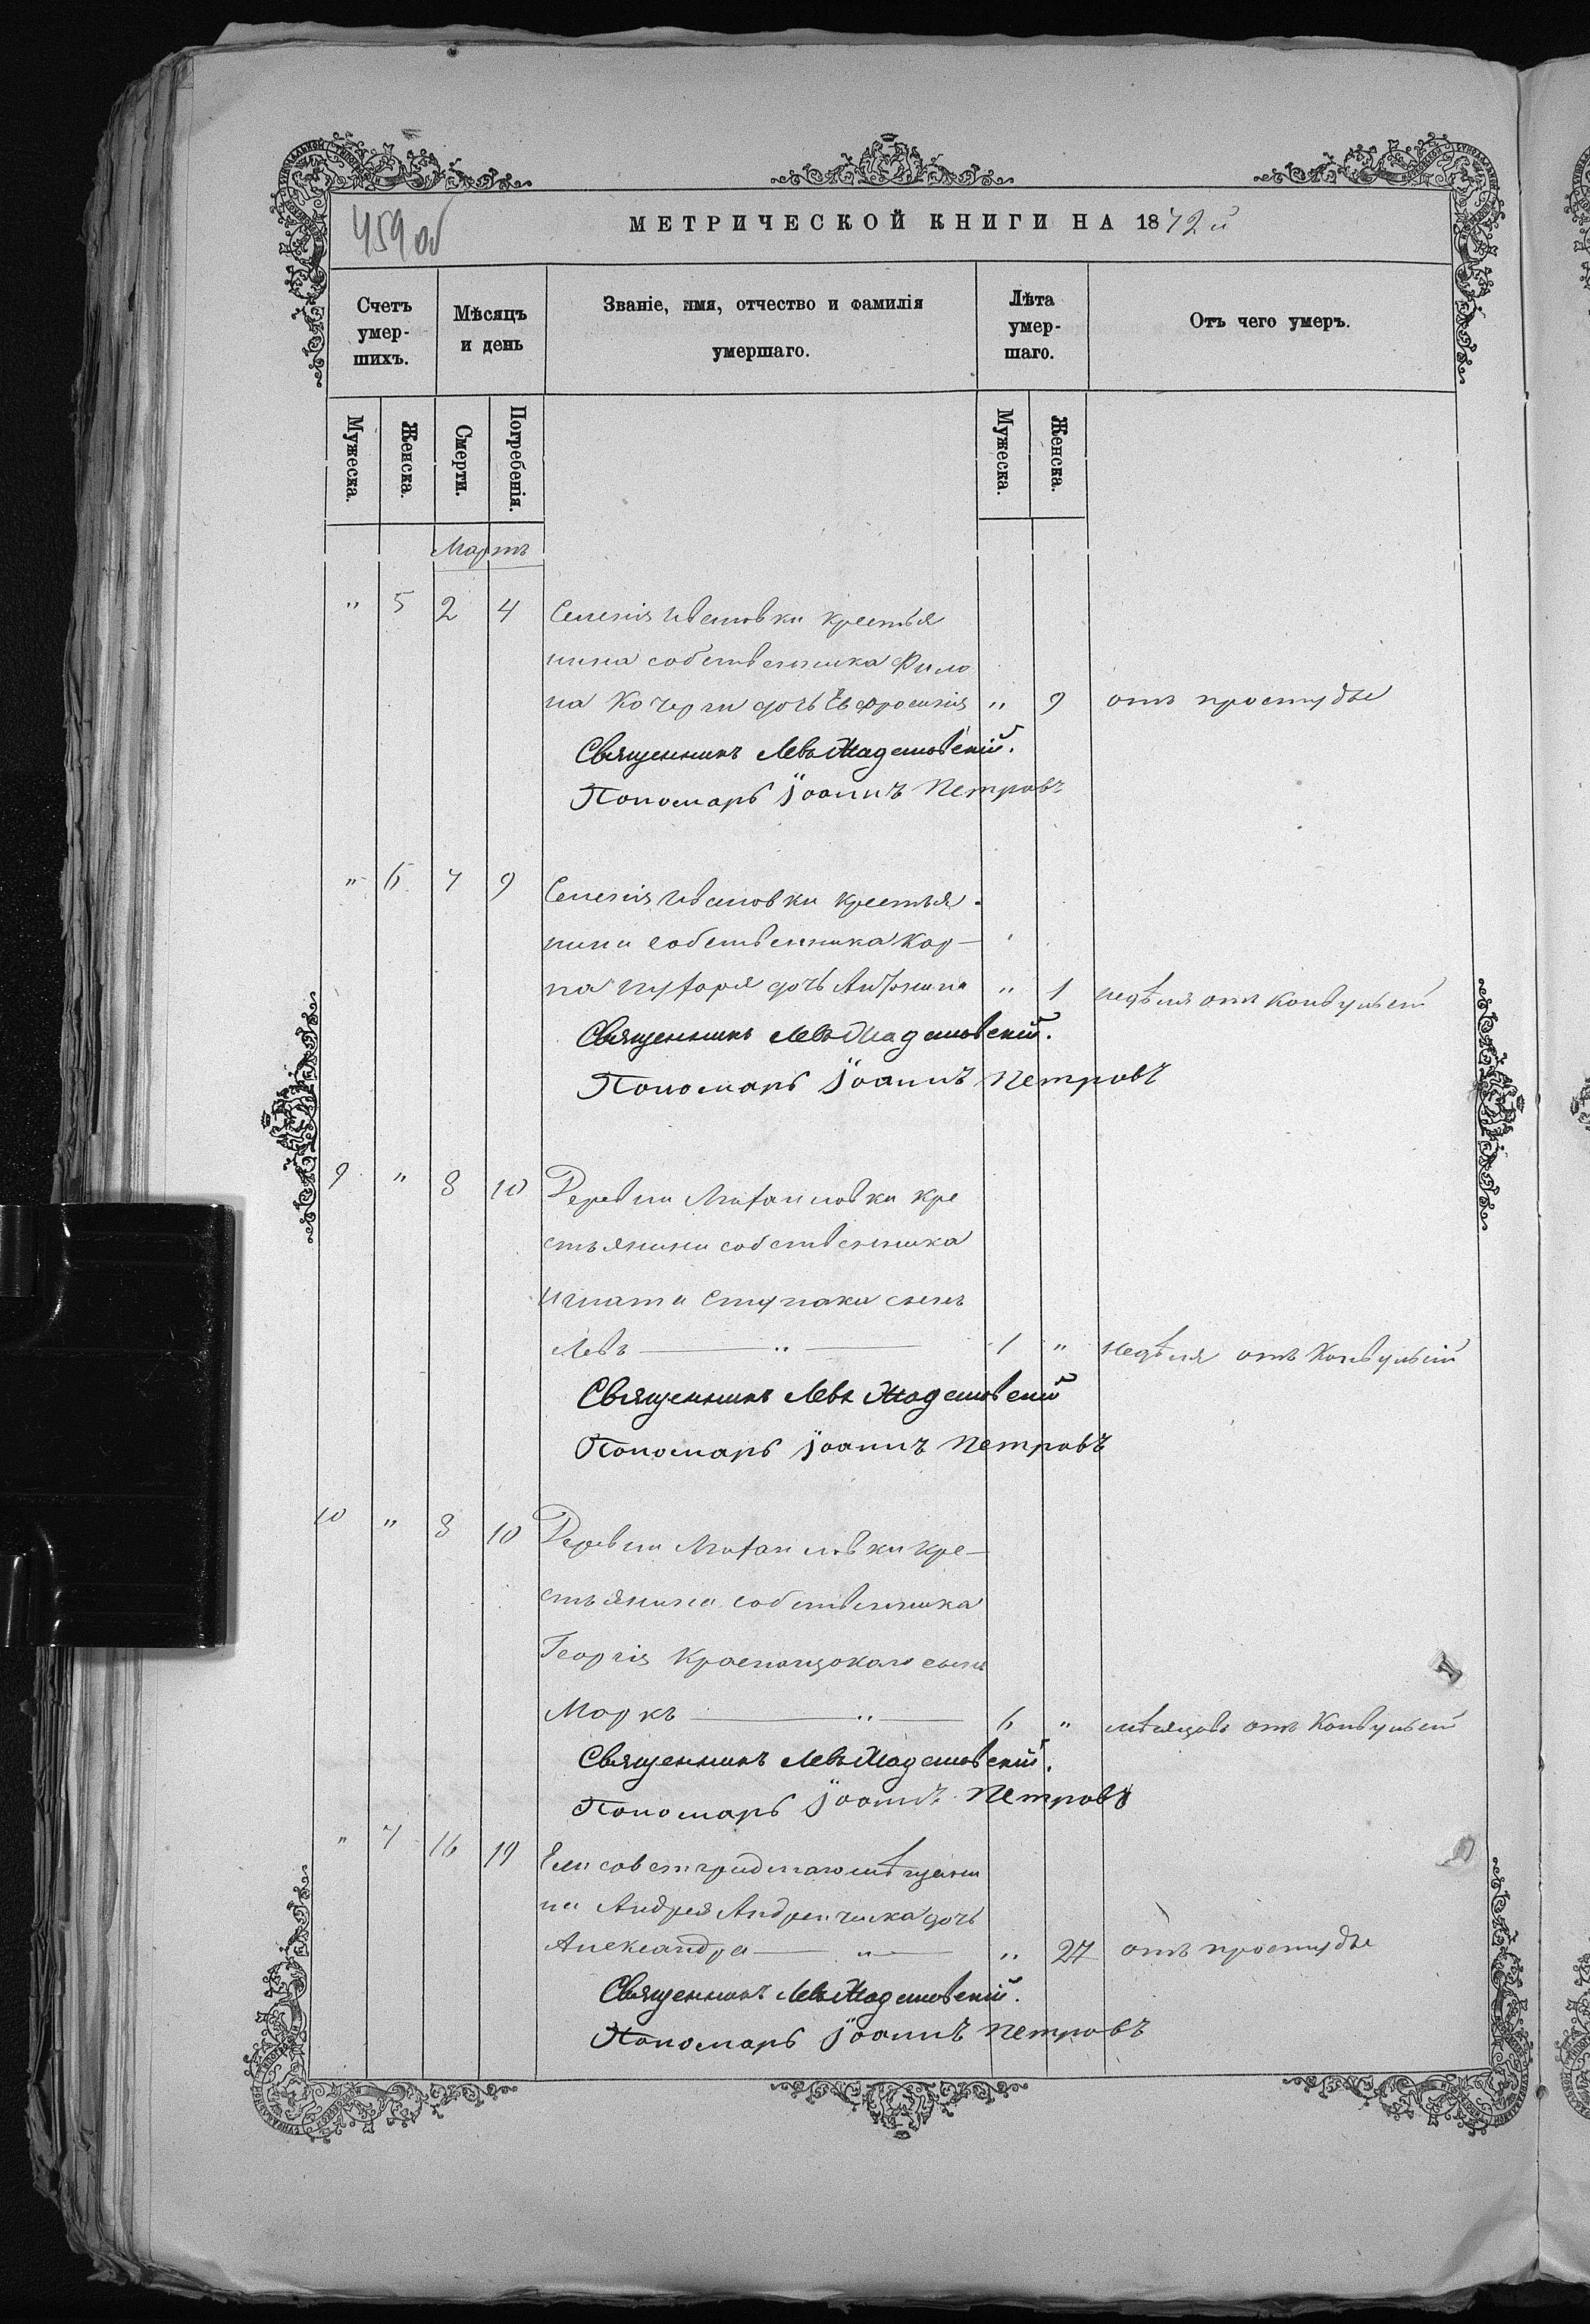 459 об
МЕТРИЧЕСКОЙ КНИГИ НА 1872й
Счетъ умер-шихъ.
Мѣсяцъ и день
Званіе, имя, отчество и фамилія умершаго.
Лѣта умер-шаго.
Отъ чего умеръ.
Мужеска.
Женска.
Смерти.
Погребенія.
Мужеска.
Женска.
Мартъ
" 5 2 4 Селенія Ивановки крестья
нина собственника Фило
на Кочерги дочь Евфросинія " 9 отъ простуды
Священникъ Левъ
Пономарь Іоаннъ Петровъ
" 6 7 9 Селенія Ивановки крестья-
нина собственника Кар-
па дочь " 1 недѣля отъ конвульсій
Священникъ Левъ
Пономарь Іоаннъ Петровъ
9 " 8 10 Деревни Михайловки кре
стьянина собственника
Игната Ступака сынъ
Левъ — " — 1 " недѣля отъ Конвульсій
Священникъ Левъ
Пономарь Іоаннъ Петровъ
10 " 8 10 Деревни Михайловки кре-
стьянина собственника
Георгія сынъ
Маркъ — " — 6 " мѣсяцовъ отъ Конвульсій
Священникъ Левъ
Пономарь Іоаннъ Петровъ
" 7 16 19 Елисаветградскаго мѣщани
на Андрея дочь
Александра — " — " 27 отъ простуды
Священникъ Левъ
Пономарь Іоаннъ Петровъ